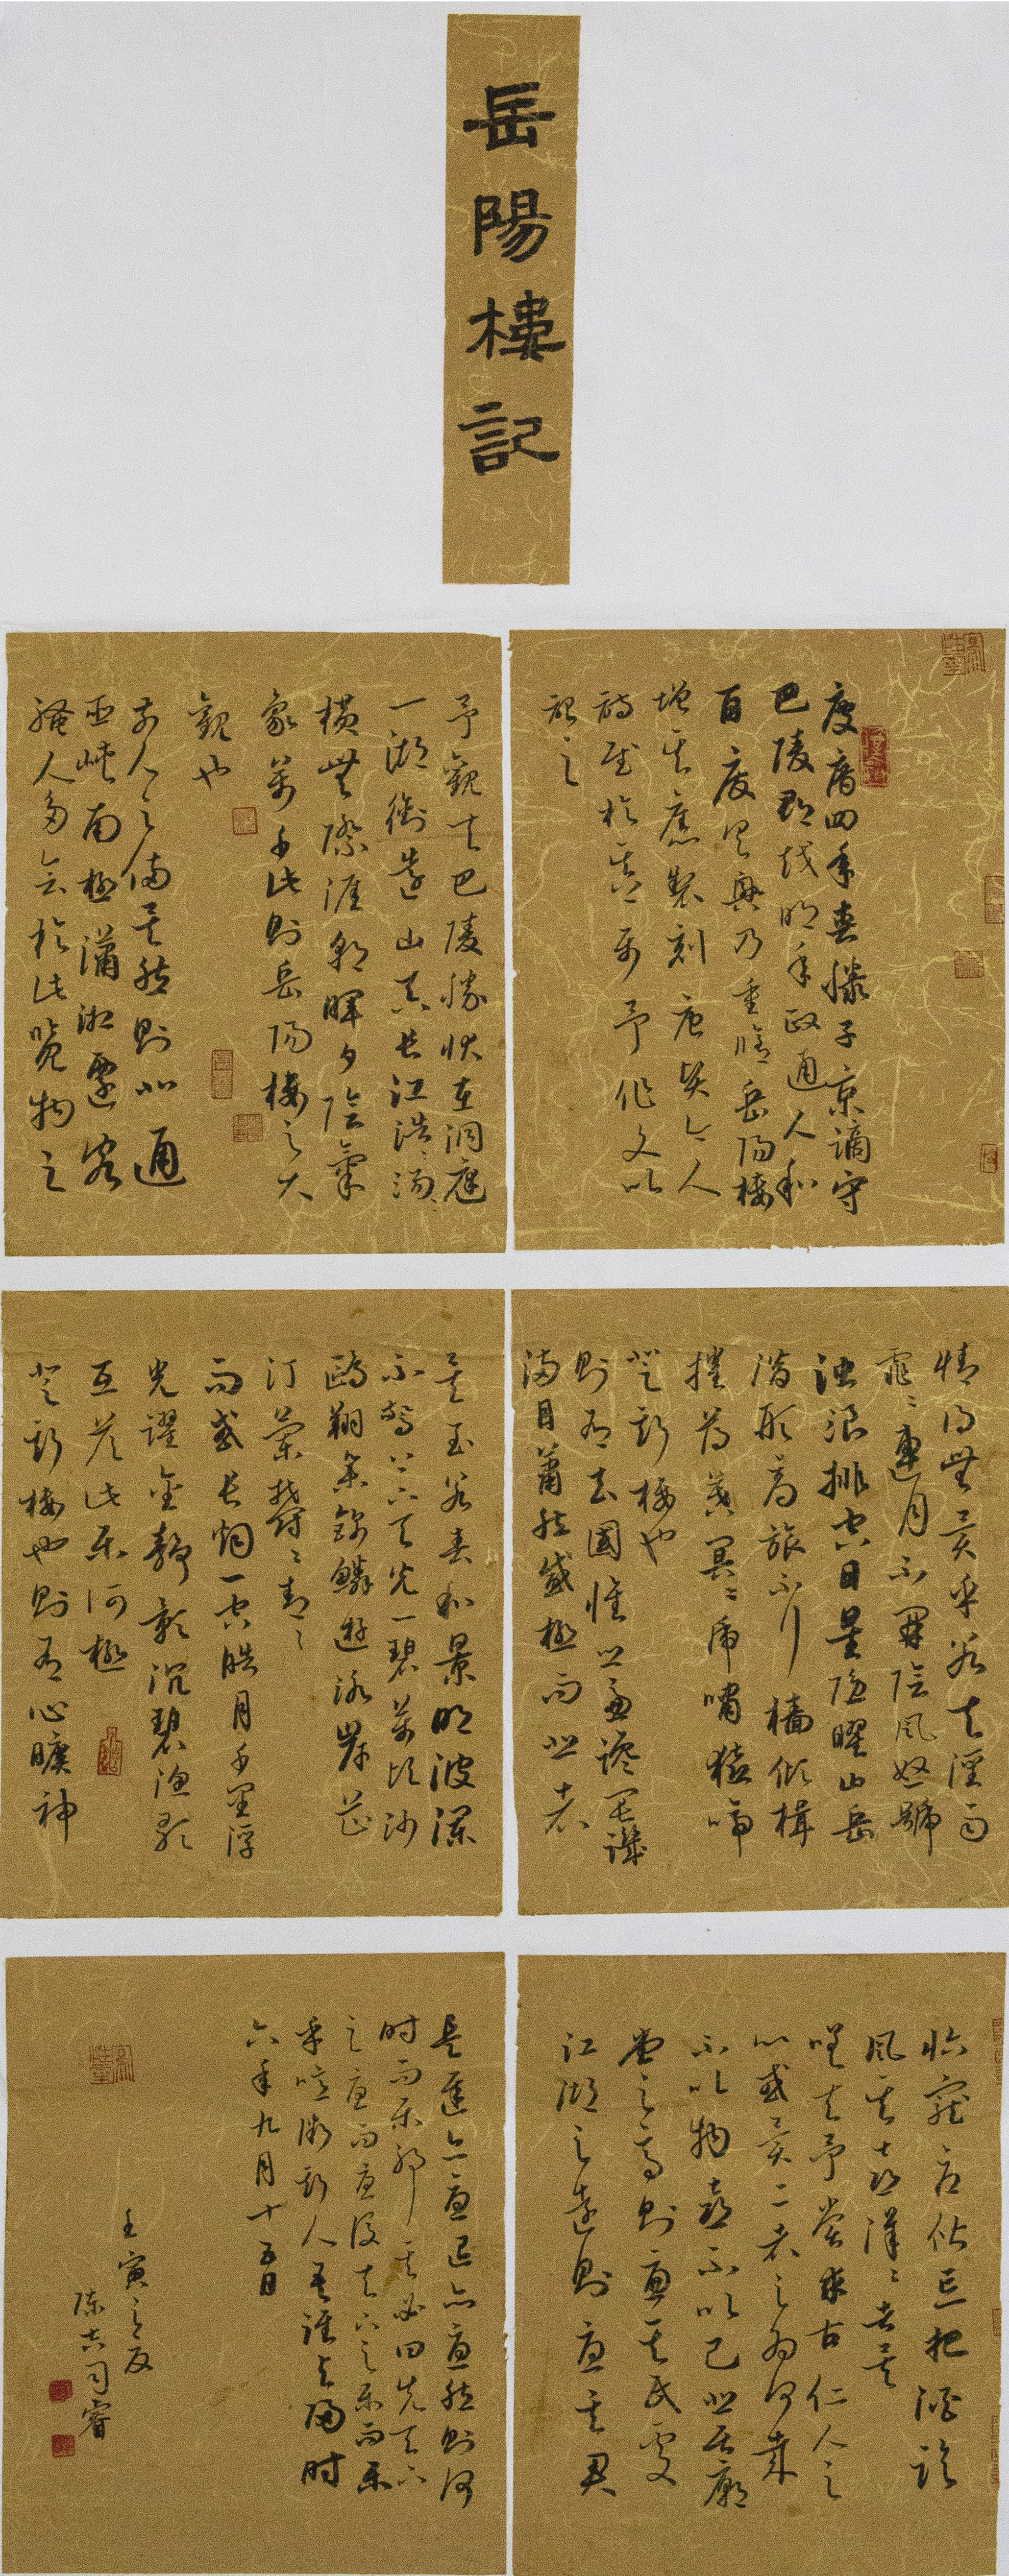 岳陽樓記
慶曆四年春滕子京謫守
巴陵郡越明年政通人和
百廢具興乃重脩岳陽樓
增其舊製刻唐賢今人
詩賦於其上屬予作文以
記之
予觀夫巴陵勝狀在洞庭
一湖銜遠山吞長江浩浩湯湯
橫無際涯朝暉夕陰氣
象萬千此則岳陽樓之大
觀也
前人之備矣然則北通
巫峽南極瀟湘遷客
騷人多會於此覽物之
情得無異乎若夫淫雨
霏霏連月不開陰風怒號
濁浪排空日星隱曜山岳
潛形商旅不行檣傾楫
摧薄暮冥冥虎嘯猿啼
登斯樓也
則有去國懷鄉憂讒畏譏
滿目蕭然感極而悲者
矣至若春和景明波瀾
不驚上下天光一碧萬頃沙
鷗翔集錦鱗遊泳岸芷
汀蘭郁郁青青
而或長烟一空皓月千里浮
光躍金靜影沉碧漁歌
互答此樂何極
登斯樓也則有心曠神
怡寵辱偕忘把酒臨
風其喜洋洋者矣
嗟夫予嘗求古仁人之
心或異二者之為何哉
不以物喜不以己悲居廟
堂之高則憂其民處
江湖之遠則憂其君
是進亦憂退亦憂然則何
時而樂耶其必曰先天下
之憂而憂後天下之樂而樂
乎噫微斯人吾誰與歸時
六年九月十五日
壬寅之夏
陳吉司睿